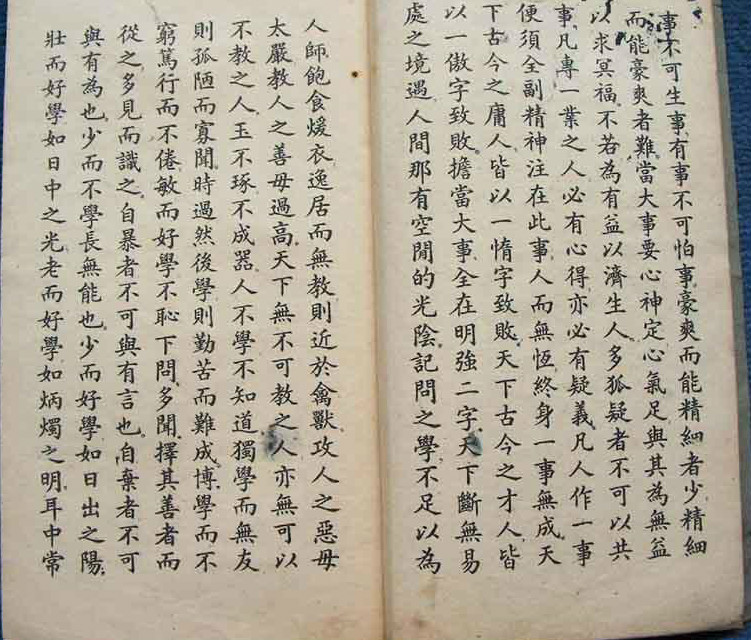 事不可生事有事不可怕事豪爽而能精細者少精細
而能豪爽者難當大事要心神定心氣足與其為無益
以求冥福不若為有益以濟生人多狐疑者不可以共
事凡專一業之人必有心得亦必有疑義凡人作一事
便須全副精神注在此事人而無恆終身一事無成天
下古今之庸人皆以一惰字致敗天下古今之才人皆
以一傲字致敗擔當大事全在明強二字天下斷無易
處之境遇人間那有空閒的光陰記問之學不足以為
人師飽食煖衣逸居而無教則近於禽獸攻人之惡毋
太嚴教人之善毋過高天下無不可教之人亦無可以
不教之人玉不琢不成器人不學不知道獨學而無友
則孤陋而寡聞時過然後學則勤苦而難成博學而不
窮篤行而不倦敏而好學不恥下問多聞擇其善者而
從之多見而識之自暴者不可與有言也自棄者不可
與有為也少而不學長無能也少而好學如日出之陽
壯而好學如日中之光老而好學如炳燭之明耳中常